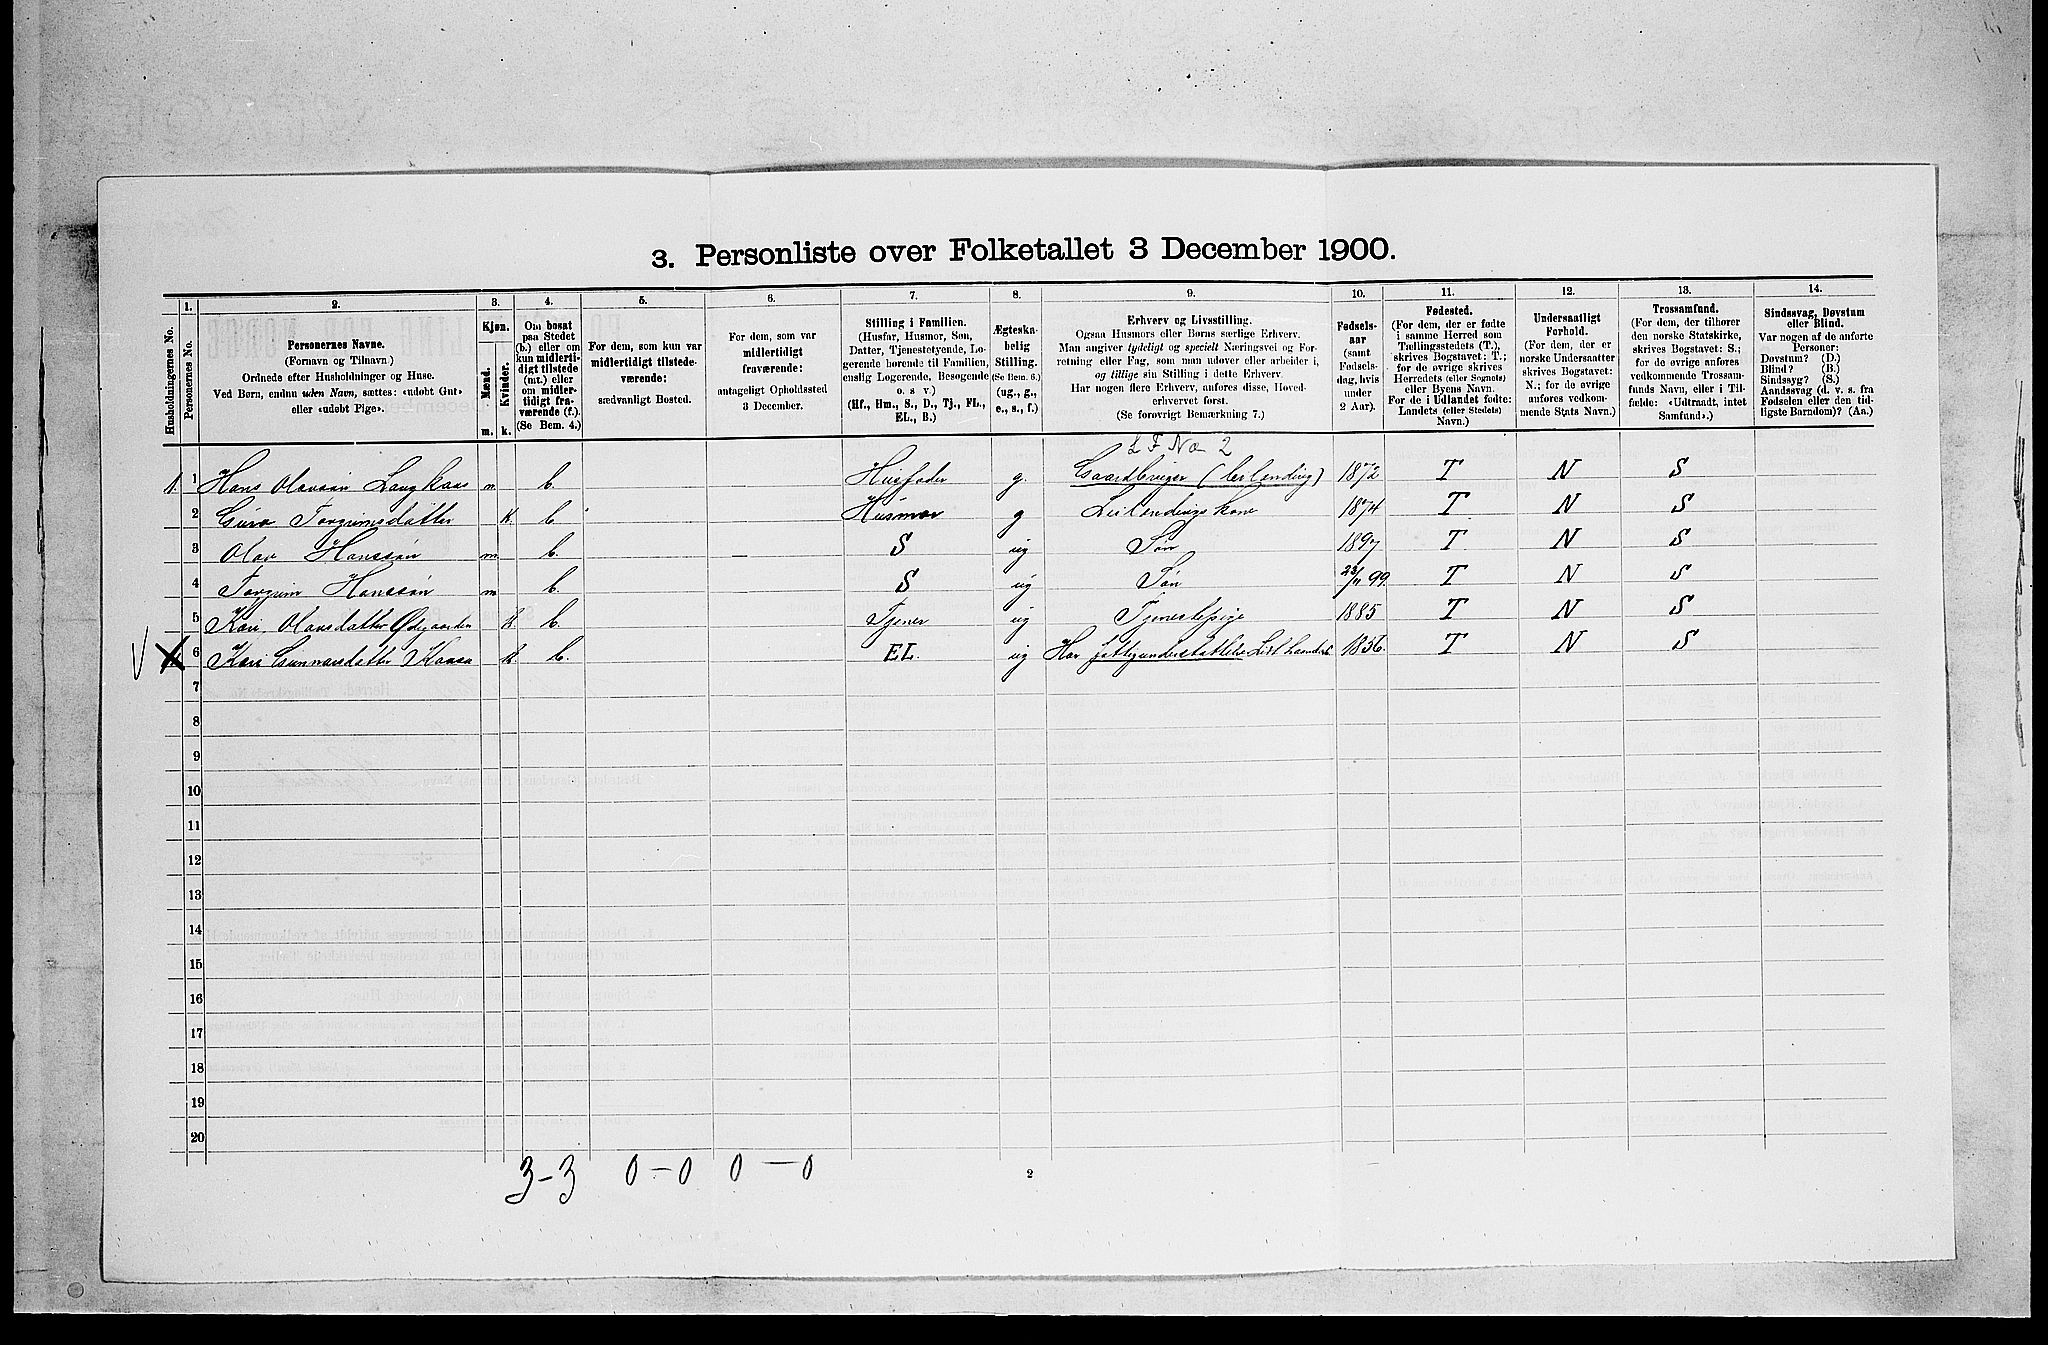 3. Personliste over Folketallet 3 December 1900.
Husholdningernes No.
1. Personernes No.
2. Personernes Navne.
(Fornavn og Tilnavn.)
Ordnede efter Husholdninger og Huse.
Ved Børn, endnu uden Navn, sættes: «udøbt Gut»
eller «udøbt Pige».
3. Kjøn.
Mænd. Kvinder.
m. k.
4. Om bosat
paa Stedet
(b.) eller om
kun midlerti-
digt tilstede
(mt.) eller
om midler-
tidigt fra-
værende (f.).
(Se Bem. 4.)
5. For dem, som kun var
midlertidigt tilstede-
værende:
sædvanligt Bosted.
6. For dem, som var
midlertidigt
fraværende:
antageligt Opholdssted
3 December.
7. Stilling i Familien.
(Husfar, Husmor, Søn,
Datter, Tjenestetyende, Lo-
gerende hørende til Familien,
enslig Logerende, Besøgende
o. s. v.)
(Hf., Hm., S., D., Tj., FL.,
EL., B.)
8. Ægteska-
belig
Stilling.
(Se Bem. 6.)
(ug., g.,
e., s., f.)
9. Erhverv og Livsstilling.
Ogsaa Husmors eller Børns særlige Erhverv.
Man angiver tydeligt og specielt Næringsvei og For-
retning eller Fag, som man udøver eller arbeider i,
og tillige sin Stilling i dette Erhverv.
Har nogen flere Erhverv, anføres disse, Hoved-
erhvervet først.
(Se forøvrigt Bemærkning 7.)
10. Fødsels-
aar
(samt
Fødsels-
dag, hvis
under
2 Aar).
11. Fødested.
(For dem, der er fødte
i samme Herred som
Tællingsstedets (T.),
skrives Bogstavet: T.;
for de øvrige skrives
Herredets (eller Sognets)
eller Byens Navn.
For de i Udlandet fødte:
Landets (eller Stedets)
Navn.)
12. Undersaatligt
Forhold.
(For dem, der er
norske Undersaatter
skrives Bogstavet:
N.; for de øvrige
anføres vedkom-
mende Stats Navn.)
13. Trossamfund.
(For dem, der tilhører
den norske Statskirke,
skrives Bogstavet: S.;
for de øvrige anføres
vedkommende Trossam-
funds Navn, eller i Til-
fælde: «Udtraadt, intet
Samfund».)
14. Sindssvag, Døvstum
eller Blind.
Var nogen af de anførte
Personer:
Døvstum? (D.)
Blind? (B.)
Sindssyg? (S.)
Aandssvag (d. v. s. fra
Fødselen eller den tid-
ligste Barndom)? (Aa.)
L F No 2
1. 1 Hans Olavsøn Langkaas m. b. Husfader g. Gaardbruger (leilending) 1872 T N S
2 Guro Torgrimsdatter k b Husmor g Leilendings kone 1874 T N S
3 Olav Hanssøn m b. S ug Søn 1897 T N S
4 Torgrim Hanssøn m b. S ug Søn 23/11 99. T N S
5 Kari Olavsdatter Ødegaarden k. b. Tjener ug Tjenestepige 1885 T N S
V 6 Kari Gunnarsdatter k. b. EL. ug Har fattigunderstøttelse 1836. T N S
7
8
9
10
11
12
13
14
15
16
17
18
19
20
3-3 0-0 0-0
2